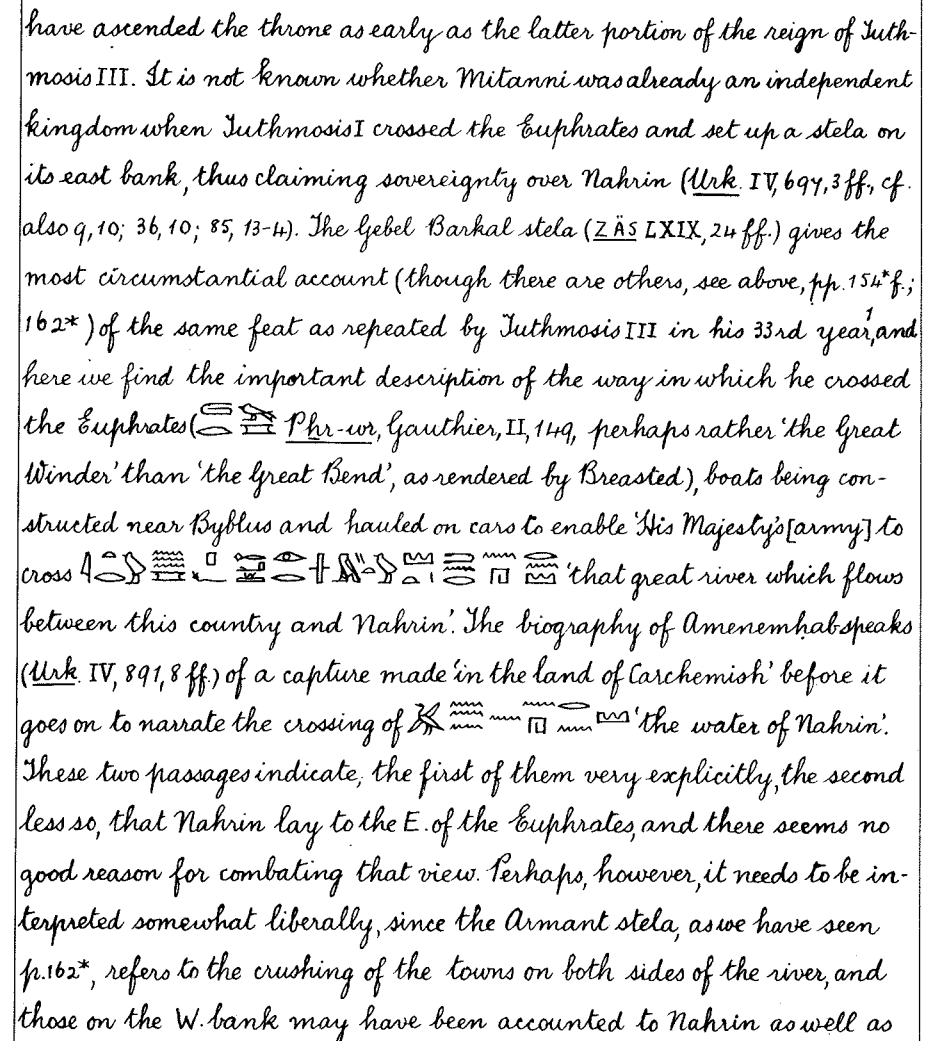 have ascended the throne as early as the latter portion of the reign of Tuth-
mosis III. It is not known whether Mitanni was already an independent
kingdom when Tuthmosis I crossed the Euphrates and set up a stela on
its east bank, thus claiming sovereignty over Nahrin (Urk. IV, 697, 3 ff., cf.
also 9, 10; 36, 10; 85, 13-4). The Gebel Barkal stela (ZÄS LXIX, 24 ff.) gives the
most circumstantial account (though there are others, see above, pp. 154* f.;
162*) of the same feat as repeated by Tuthmosis III in his 33rd year,¹ and
here we find the important description of the way in which he crossed
the Euphrates ( Pḫr-wr, Gauthier, II, 149, perhaps rather 'the Great
Winder' than 'the Great Bend', as rendered by Breasted), boats being con-
structed near Byblus and hauled on cars to enable 'His Majesty's [army] to
cross 'that great river which flows
between this country and Nahrin'. The biography of Amenemhab speaks
(Urk. IV, 891, 8 ff.) of a capture made 'in the land of Carchemish' before it
goes on to narrate the crossing of 'the water of Nahrin'.
These two passages indicate, the first of them very explicitly, the second
less so, that Nahrin lay to the E. of the Euphrates, and there seems no
good reason for combating that view. Perhaps, however, it needs to be in-
terpreted somewhat liberally, since the Armant stela, as we have seen
p. 162*, refers to the crushing of the towns on both sides of the river, and
those on the W. bank may have been accounted to Nahrin as well as